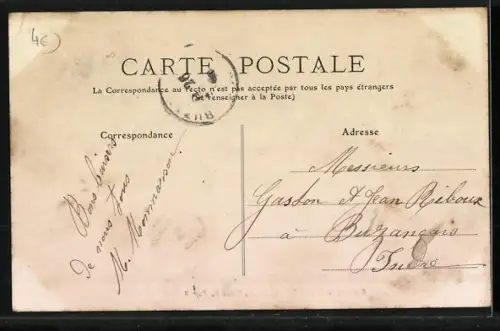 4€
CARTE POSTALE
La Correspondance au recto n'est pas acceptée par tous les pays étrangers
(Se renseigner à la Poste)
BUZ
26
Correspondance
Adresse
Bons baisers
de nous tous
M.
Messieurs
Gaston & Jean Riboux
à Buzançais
Indre